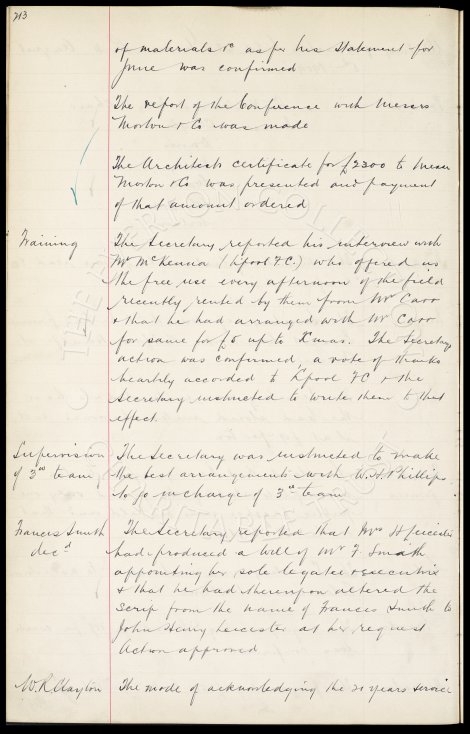 213
of materials &c as per his Statement for
June was confirmed
The report of the Conference with Messrs
Morton & Co was made
The Architects certificate for £2300 to Messrs
Morton & Co was presented and payment
of that amount ordered
Training
The Secretary reported his interview with
Mr McKenna (L'pool F.C.) who offered us
the free use every afternoon of the field
recently rented by them from Mr Carr
& that he had arranged with Mr Carr
for same for £5 up to Xmas. The Secretarys
action was confirmed, a vote of thanks
heartily accorded to L'pool FC & the
Secretary instructed to write them to that
effect.
Supervision
of 3rd team
The Secretary was instructed to make
the best arrangement with W.H. Phillips
to go in charge of 3rd team
Francis Smith
decd
The Secretary reported that Mrs H Leicester
had produced a will of Mr F. Smith
appointing her sole legatee & executrix
& that he had thereupon altered the
scrip from the name of Francis Smith to
John Henry Leicester at her request
Action approved
W. R. Clayton
The mode of acknowledging the 21 years service